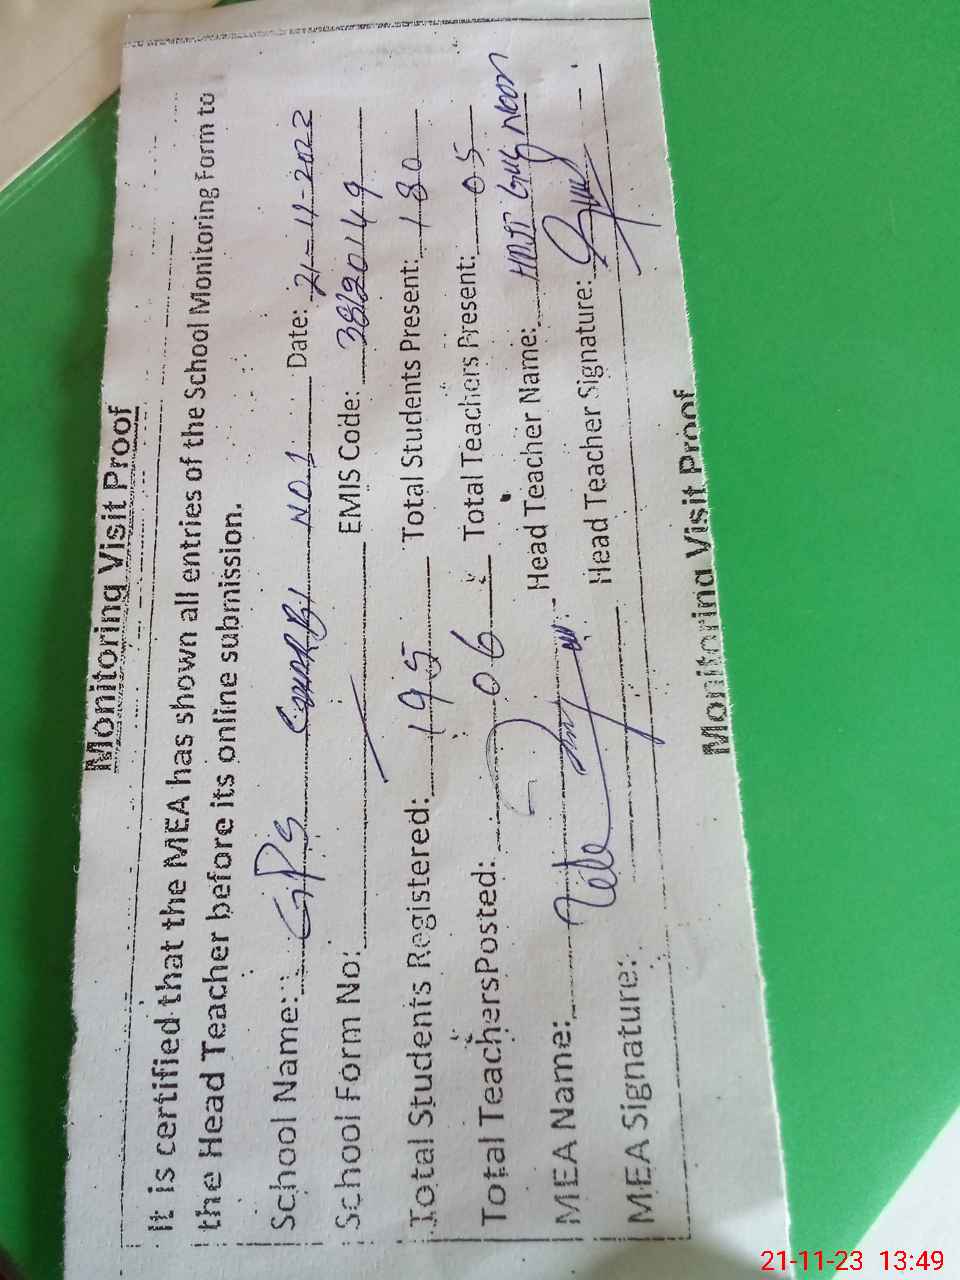 Monitoring Visit Proof
It is certified that the MEA has shown all entries of the School Monitoring Form to
the Head Teacher before its online submission.
School Name: GPS NO.1 Date: 21-11-2023
School Form No: EMIS Code: 38220149
Total Students Registered: 195 Total Students Present: 180
Total Teachers Posted: 06 Total Teachers Present: 05
MEA Name: Head Teacher Name:
MEA Signature: Head Teacher Signature:
Monitoring Visit Proof
21-11-23 13:49